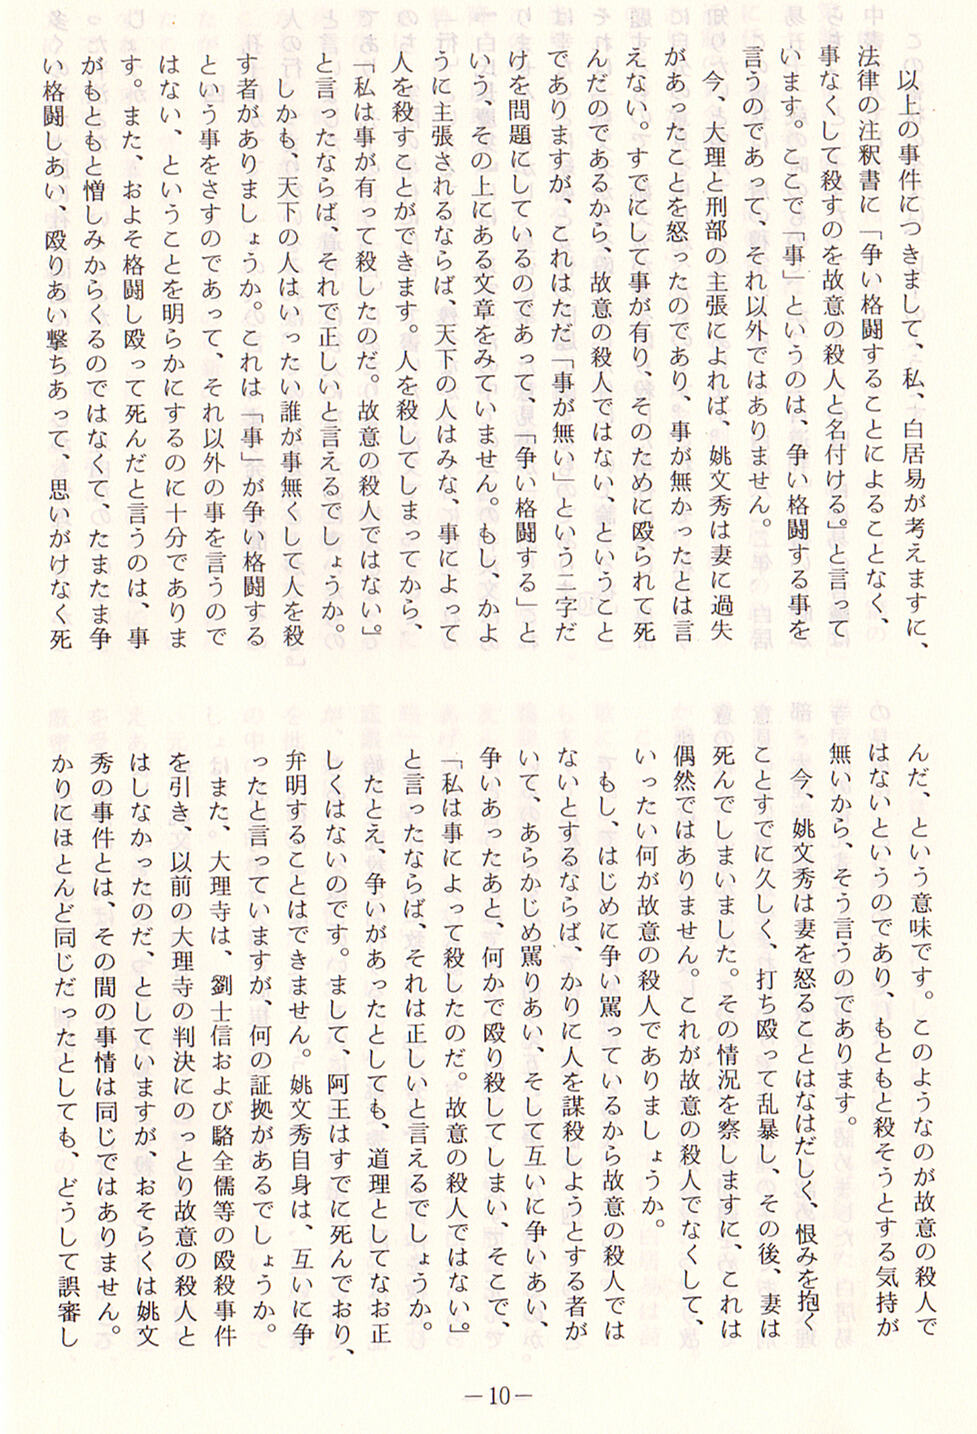 以上の事件につきまして、私、白居易が考えますに、
法律の注釈書に「争い格闘することによることなく、
事なくして殺すのを故意の殺人と名付ける。」と言って
います。ここで「事」というのは、争い格闘する事を
言うのであって、それ以外ではありません。
今、大理と刑部の主張によれば、姚文秀は妻に過失
があったことを怒ったのであり、事が無かったとは言
えない。すでにして事が有り、そのために殴られて死
んだのであるから、故意の殺人ではない、ということ
でありますが、これはただ「事が無い」という二字だ
けを問題にしているのであって、「争い格闘する」と
いう、その上にある文章をみていません。もし、かよ
うに主張されるならば、天下の人はみな、事によって
人を殺すことができます。人を殺してしまってから、
「私は事が有って殺したのだ。故意の殺人ではない。」
と言ったならば、それで正しいと言えるでしょうか。
しかも、天下の人はいったい誰が事無くして人を殺
す者がありましょうか。これは「事」が争い格闘する
という事をさすのであって、それ以外の事を言うので
はない、ということを明らかにするのに十分でありま
す。また、およそ格闘し殴って死んだと言うのは、事
がもともと憎しみからくるのではなくて、たまたま争
い格闘しあい、殴りあい撃ちあって、思いがけなく死
んだ、という意味です。このようなのが故意の殺人で
はないというのであり、もともと殺そうとする気持が
無いから、そう言うのであります。
今、姚文秀は妻を怒ることはなはだしく、恨みを抱く
ことすでに久しく、打ち殴って乱暴し、その後、妻は
死んでしまいました。その情況を察しますに、これは
偶然ではありません。これが故意の殺人でなくして、
いったい何が故意の殺人でありましょうか。
もし、はじめに争い罵っているから故意の殺人では
ないとするならば、かりに人を謀殺しようとする者が
いて、あらかじめ罵りあい、そして互いに争いあい、
争いあったあと、何かで殴り殺してしまい、そこで、
「私は事によって殺したのだ。故意の殺人ではない。」
と言ったならば、それは正しいと言えるでしょうか。
たとえ、争いがあったとしても、道理としてなお正
しくはないのです。まして、阿王はすでに死んでおり、
弁明することはできません。姚文秀自身は、互いに争
ったと言っていますが、何の証拠があるでしょうか。
また、大理寺は、劉士信および駱全儒等の殴殺事件
を引き、以前の大理寺の判決にのっとり故意の殺人と
はしなかったのだ、としていますが、おそらくは姚文
秀の事件とは、その間の事情は同じではありません。
かりにほとんど同じだったとしても、どうして誤審し
—10—